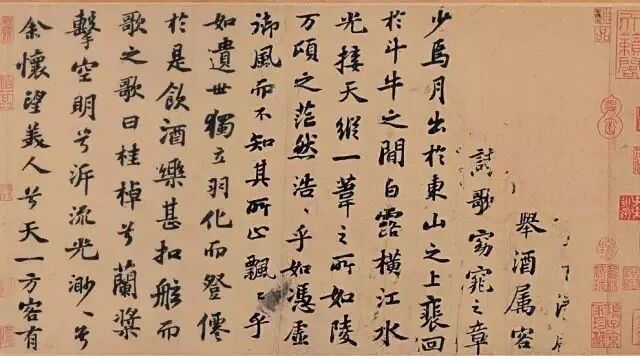 舉酒属客
歌窈窕之章
少焉月出於東山之上裴回
於斗牛之間白露橫江水
光接天縱一葦之所如陵
万頃之茫然浩〻乎如馮虛
御風而不知其所止飄〻乎
如遺世獨立羽化而登僊
於是飲酒樂甚扣舷而
歌之歌曰桂棹兮蘭槳
擊空明兮泝流光渺〻兮
余懷望美人兮天一方客有